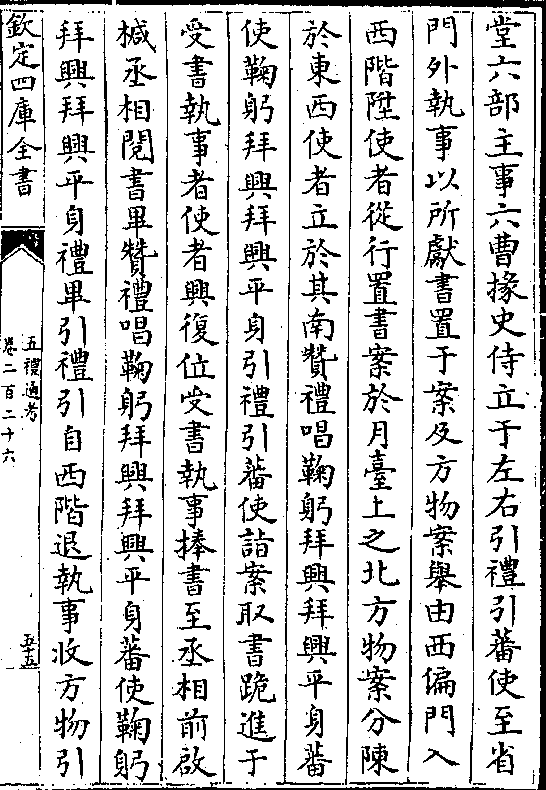 堂六部主事六曹掾史侍立于左右引禮引蕃使至省
門外執事以所獻書置于案及方物案舉由西偏門入
西階陞使者從行置書案於月臺上之北方物案分陳
於東西使者立於其南贊禮唱鞠躬拜興拜興平身蕃
使鞠躬拜興拜興平身引禮引蕃使詣案取書跪進于
受書執事者使者興復位受書執事捧書至丞相前啟
椷丞相閱書畢贊禮唱鞠躬拜興拜興平身蕃使鞠躬
拜興拜興平身禮畢引禮引自西階退執事收方物引
欽定四庫全書
五禮通考
卷二百二十六
五十五